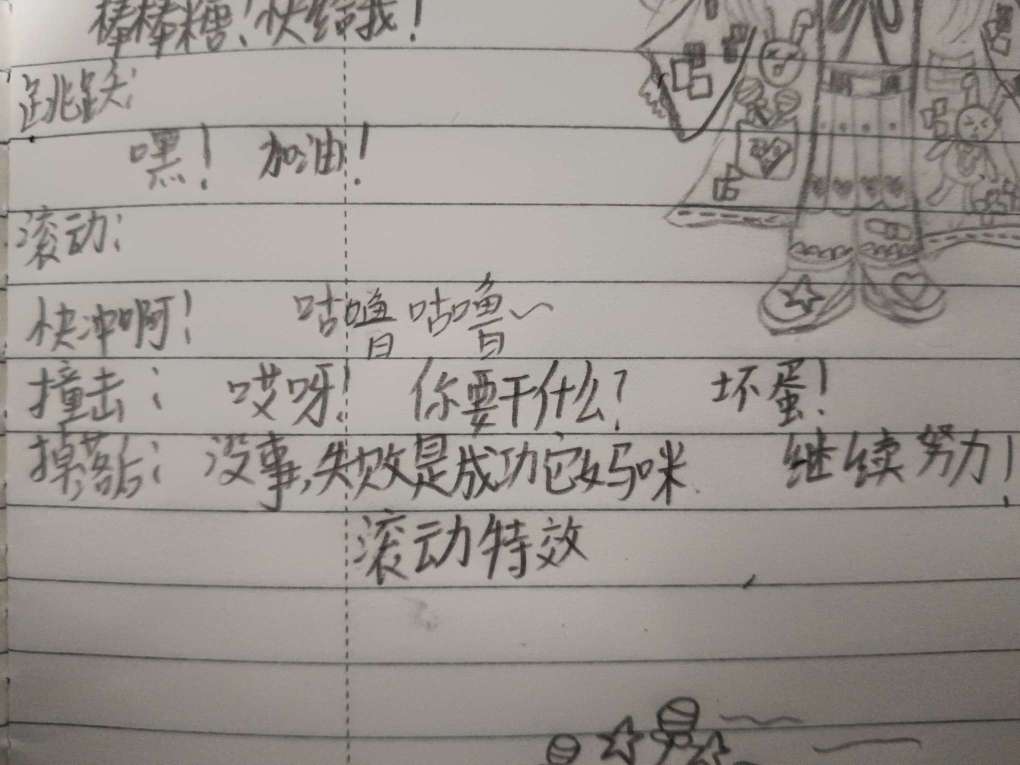 棒棒糖!快给我!
跳跃:
嘿! 加油!
滚动:
快冲啊! 咕噜咕噜~
撞击: 哎呀! 你要干什么? 坏蛋!
掉落后: 没事,失败是成功它妈咪 继续努力!
滚动特效